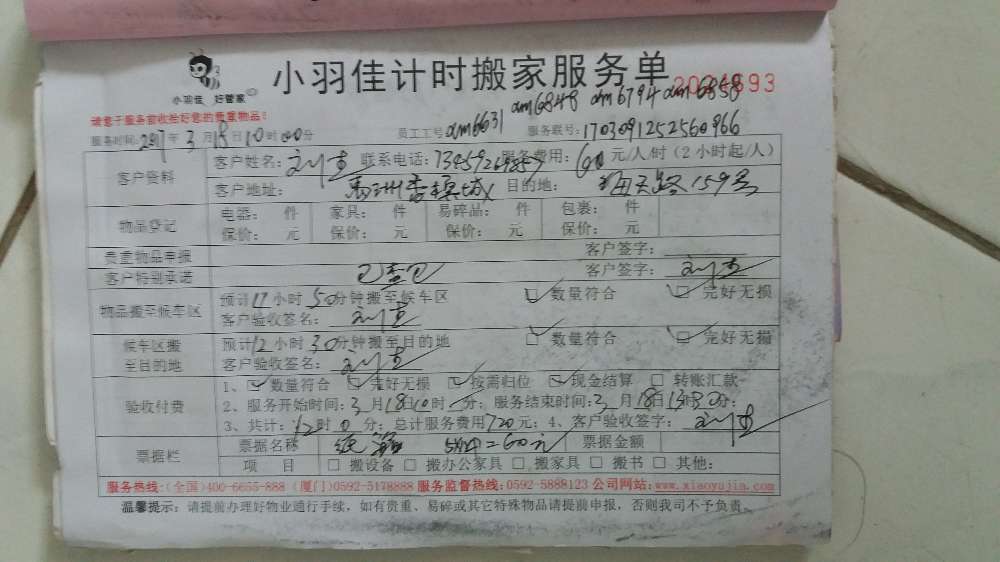 小羽佳计时搬家服务单
小羽佳 好管家
请您于服务前收拾好您的贵重物品！
xm6848 xm6794 xm6858
服务时间：2017年3月18日10时00分 员工工号xm6631 服务联号：1703091252560966
客户资料 客户姓名： 联系电话： 服务费用：60元/人/时（2小时起/人）
客户地址： 目的地： 路159号
物品登记 电器： 件 家具： 件 易碎品： 件 包裹： 件
保价： 元 保价： 元 保价： 元 保价： 元
贵重物品申报 客户签字：
客户特别承诺 已查已 客户签字：
物品搬至候车区 预计11小时50分钟搬至候车区 ☑ 数量符合 ☑ 完好无损
客户验收签名：
候车区搬至目的地 预计12小时30分钟搬至目的地 ☑ 数量符合 ☑ 完好无损
客户验收签名：
验收付费 1、☑ 数量符合 ☑ 完好无损 ☑ 按需归位 ☑ 现金结算 □ 转账汇款
2、服务开始时间：3月18日10时 分；服务结束时间：3月18日13时30分；
3、共计：12时0分；总计服务费用720元；4、客户验收签字：
票据栏 票据名称 纸箱 =60元 票据金额
项 目 □ 搬设备 □ 搬办公家具 □ 搬家具 □ 搬书 □ 其他：
服务热线：(全国)400-6655-888 (厦门)0592-5178888 服务监督热线：0592-5888123 公司网站：www.xiaoyujia.com
温馨提示：请提前办理好物业通行手续，如有贵重、易碎或其它特殊物品请提前申报，否则我司不予负责。